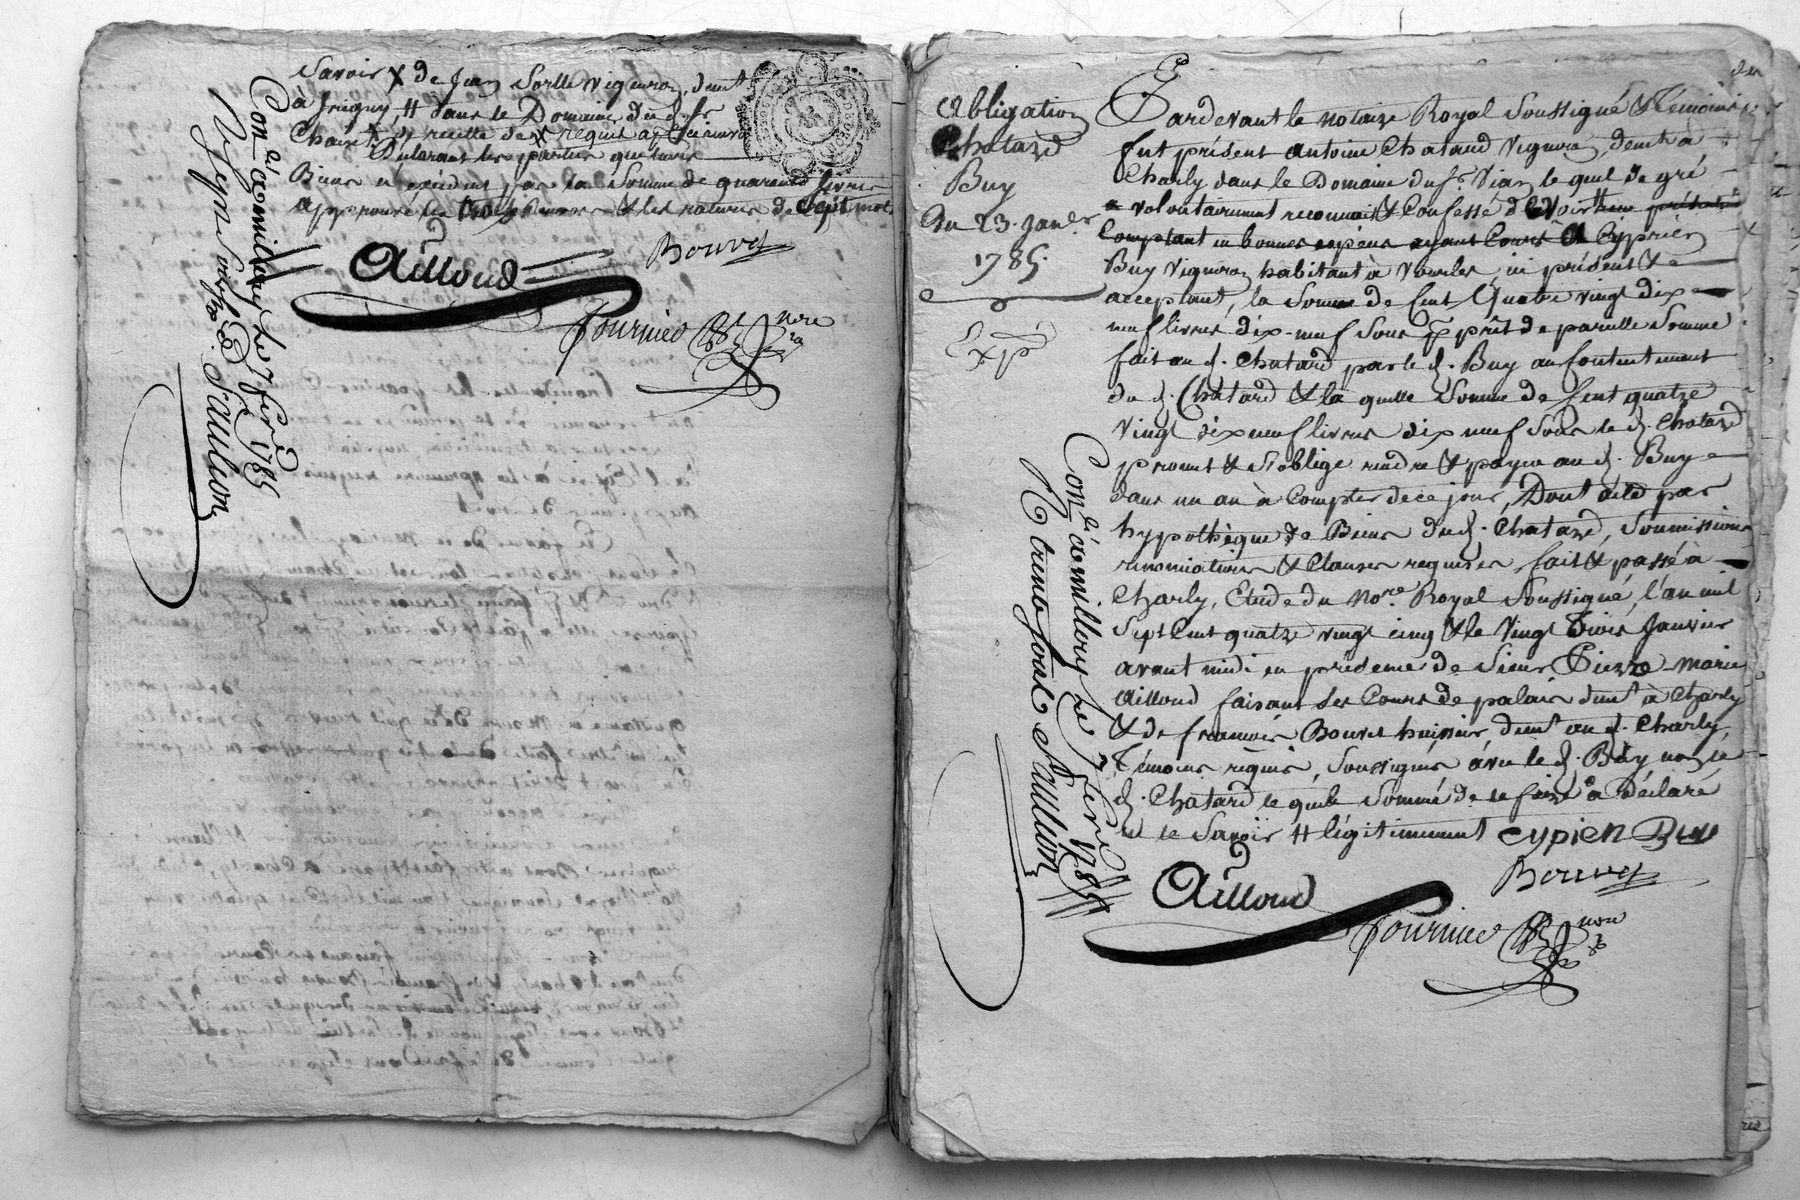 Savoir X de Jean Sorlle vigneron, demt
à Irigny, # dans le Domaine du d. sr
Déclarant les parties que leurs
Biens n'excèdent pas la somme de quarante livres
approuvé les trois renvois & les ratures de sept mots
Ailloud
Bouvet
Fournier
nore
Con.lé à millery le 7 fevr 1785
Saulion
Obligation
Chatard
Buy
Du 23. Janv.r
1785.
Exp
Pardevant le notaire Royal soussigné & témoins
fut présent antoine Chatard Vigneron, demt à
Charly dans le Domaine du sr. Vian le quel de gré
& volontairement reconnoit & confesse devoir
Comptant en bonnes espèces ayant Cours A Cyprien
Buy Vigneron habitant à Vourles, ici présent &
acceptant, la somme de Cent Quatre vingt dix
neuf livres dix-neuf sous pr. prêt de pareille somme
fait au d. Chatard par le d. Buy au Contentement
du d. Chatard & la quelle somme de Cent quatre
vingt dix neuf livres dix neuf sous le d. Chatard
promet & s'oblige rendre & payer au d. Buy
dans un an à Compter de ce jour, Dont acte par
hypothèque de Biens du d. Chatard, Soumissions
renonciations & Clauses requises, fait & passé à
Charly, Etude du Nore. Royal soussigné, l'an mil
Sept Cent quatre vingt cinq & le Vingt trois Janvier
avant midi en présence de Sieur Pierre-marie
Ailloud faisant ses Cours de palais demt à Charly
& de francois Bouvet huissier, demt au d. Charly
témoins requis, soussignés avec le d. Buy non le
d. Chatard le quel sommé de le faire a Déclaré
ne le Savoir # légitimement cypien Buy
Ailloud
Bouvet
Fournier
nore
Con.lé à millery le 7 fevr 1785
R trente sous Saulion